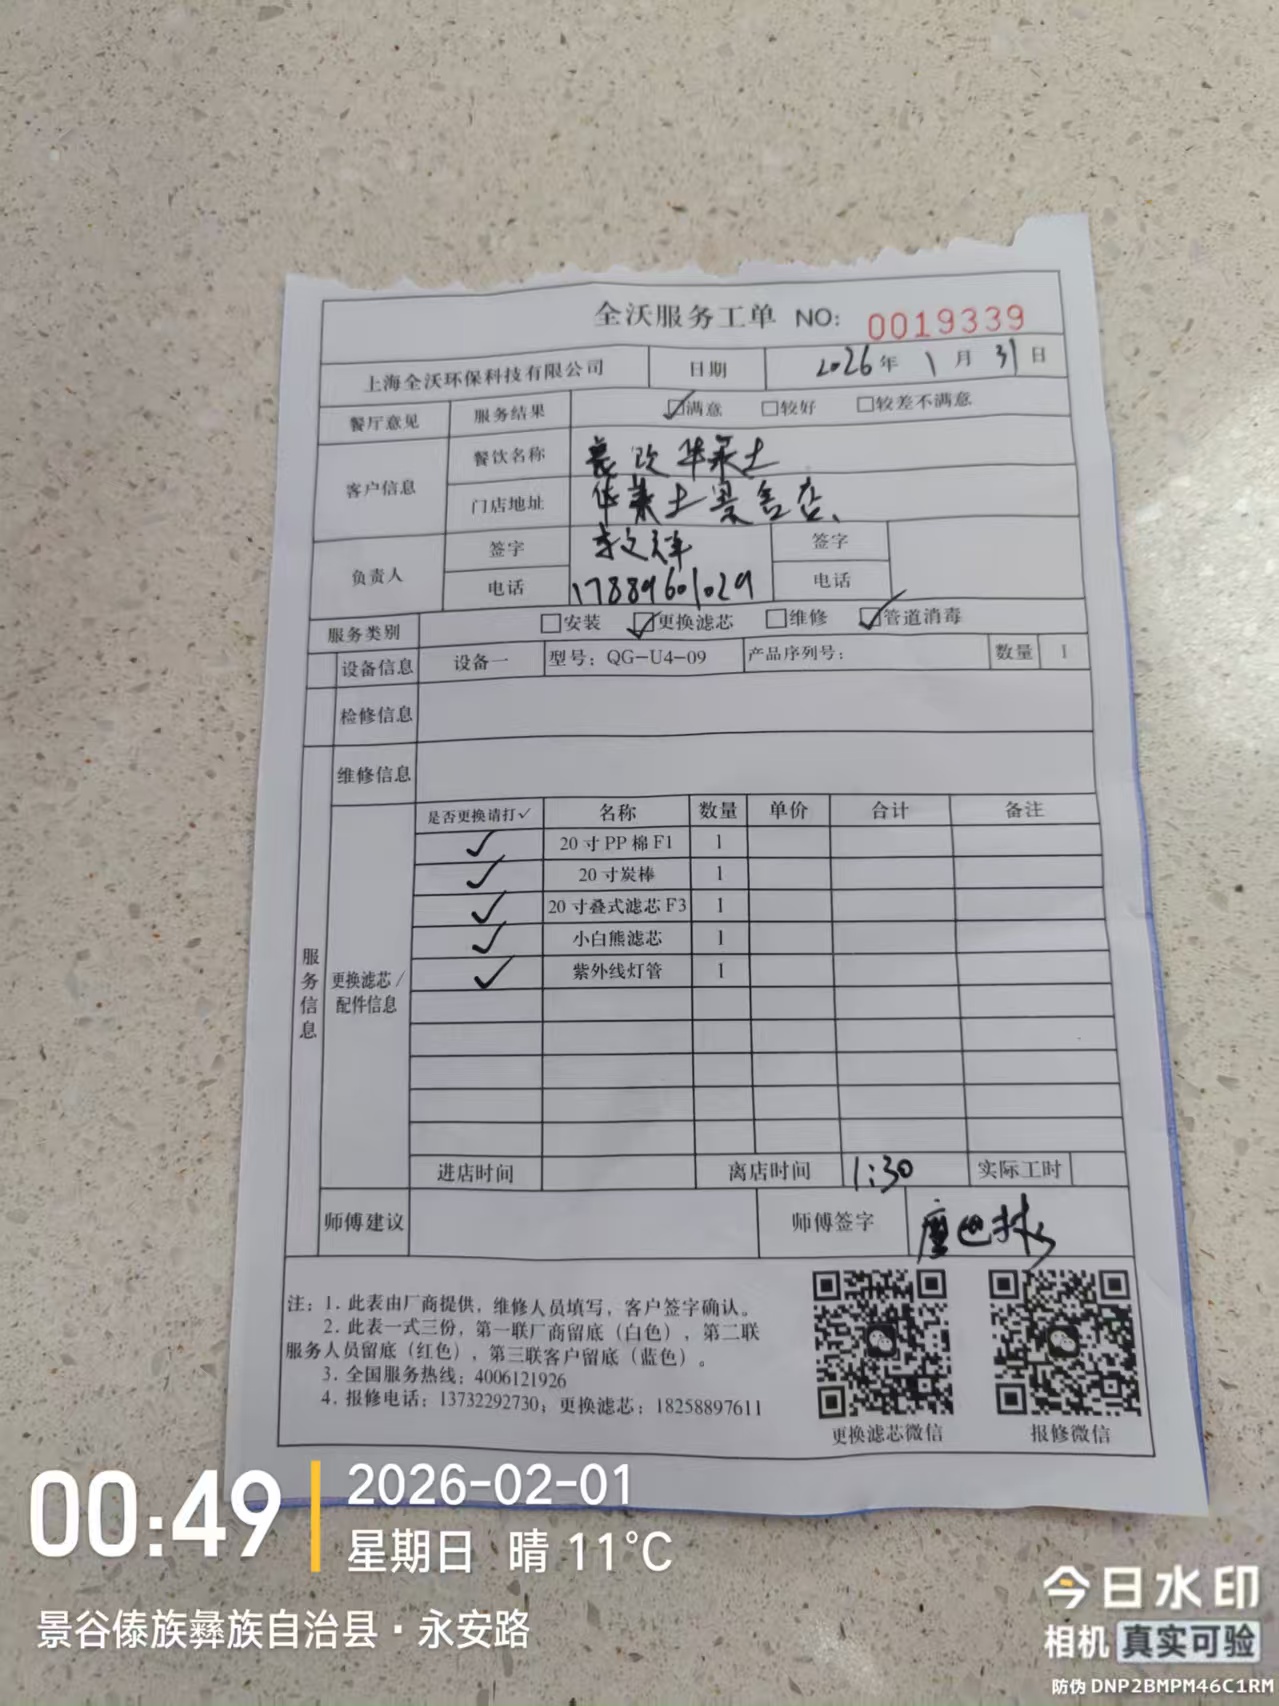 全沃服务工单 NO: 0019339
上海全沃环保科技有限公司 日期 2026年 1月 31日
餐厅意见 服务结果 ☑满意 □较好 □较差不满意
客户信息 餐饮名称 华莱士
门店地址 华莱士景谷店
负责人 签字 李文祥 签字
电话 17889601029 电话
服务类别 □安装 ☑更换滤芯 □维修 ☑管道消毒
设备信息 设备一 型号：QG-U4-09 产品序列号： 数量 1
检修信息
维修信息
服务信息
更换滤芯/配件信息
是否更换请打✓ 名称 数量 单价 合计 备注
✓ 20寸PP棉F1 1
✓ 20寸炭棒 1
✓ 20寸叠式滤芯F3 1
✓ 小白熊滤芯 1
✓ 紫外线灯管 1
进店时间 离店时间 1:30 实际工时
师傅建议 师傅签字
注：1. 此表由厂商提供，维修人员填写，客户签字确认。
2. 此表一式三份，第一联厂商留底（白色），第二联
服务人员留底（红色），第三联客户留底（蓝色）。
3. 全国服务热线：4006121926
4. 报修电话：13732292730；更换滤芯：18258897611
更换滤芯微信 报修微信
00:49 2026-02-01
星期日 晴 11°C
景谷傣族彝族自治县·永安路
今日水印
相机 真实可验
防伪 DNP2BMPM46C1RM